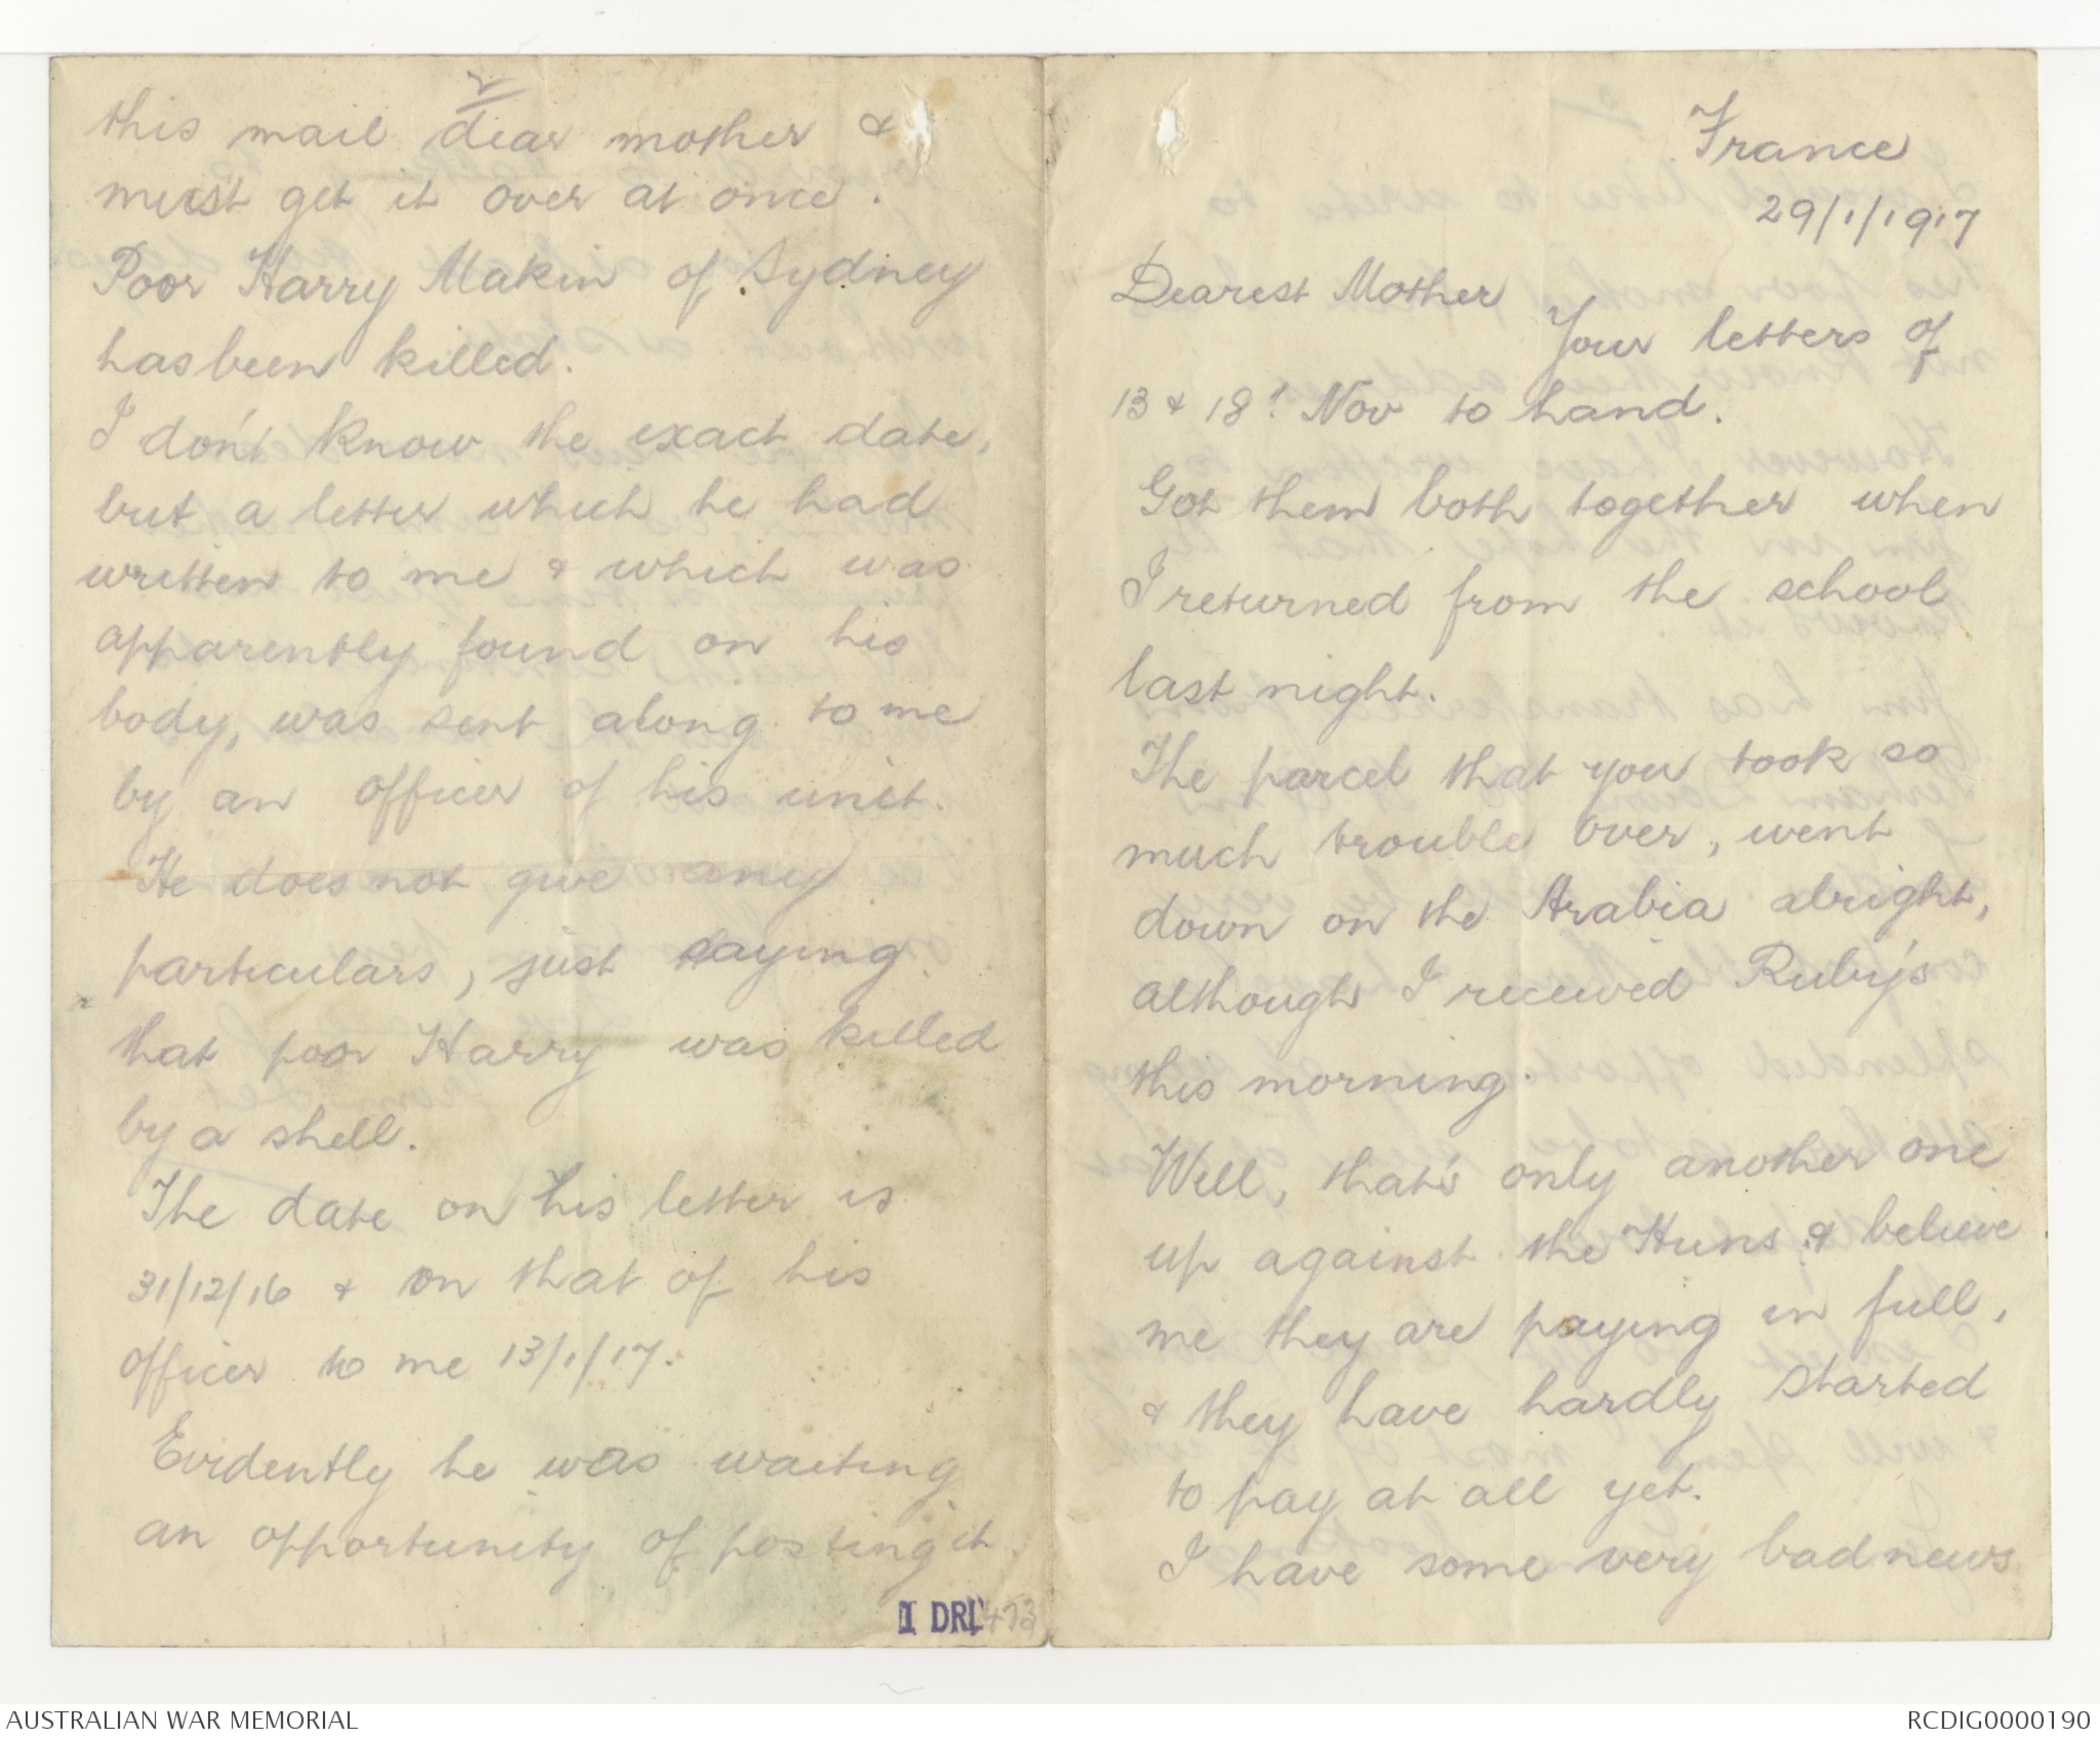 France
29/1/1917
Dearest Mother
Your letters of
13 & 18th Nov to hand.
Got them both together when
I returned from the school
last night.
The parcel that you took so
much trouble over, went
down on the Arabia alright,
although I received Ruby's
this morning.
Well, that's only another one
up against the Huns & believe
me they are paying in full,
& they have hardly started
to pay at all yet.
I have some very bad news
2
this mail dear mother &
must get it over at once.
Poor Harry Makin of Sydney
has been killed.
I don't know the exact date,
but a letter which he had
written to me & which was
apparently found on his
body, was sent along to me
by an officer of his unit.
He does not give any
particulars, just saying
that poor Harry was killed
by a shell.
The date on his letter is
31/12/16 & on that of his
officer to me 13/1/17.
Evidently he was waiting
an opportunity of posting it.
1 DRL 473
AUSTRALIAN WAR MEMORIAL
RCDIG0000190